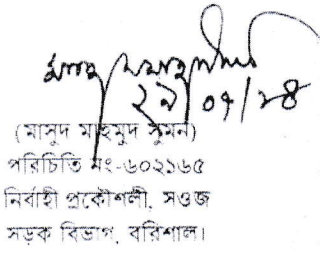 ২৯/০৭/২৪
(মাসুদ মাহমুদ সুমন)
পরিচিতি নং-৬০২১৬৫
নির্বাহী প্রকৌশলী, সওজ
সড়ক বিভাগ, বরিশাল।